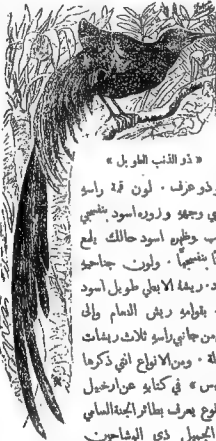 « ذو الذنب الطويل »
وذو عرف . لون قمة راسهِ
وزوره اسود بنفسجي
وظهره اسود حالك يلمع
بنفسجياً . ولون جناحيهِ
ريشهُ الابطي طويل اسود
بقوام ريش النعام والى
من جانبي راسهِ ثلاث ريشات
ومن الانواع التي ذكرها
» في كتابهِ عن ارخبيل
يعرف بطائر الجنة السامي
ذي الوشاحين